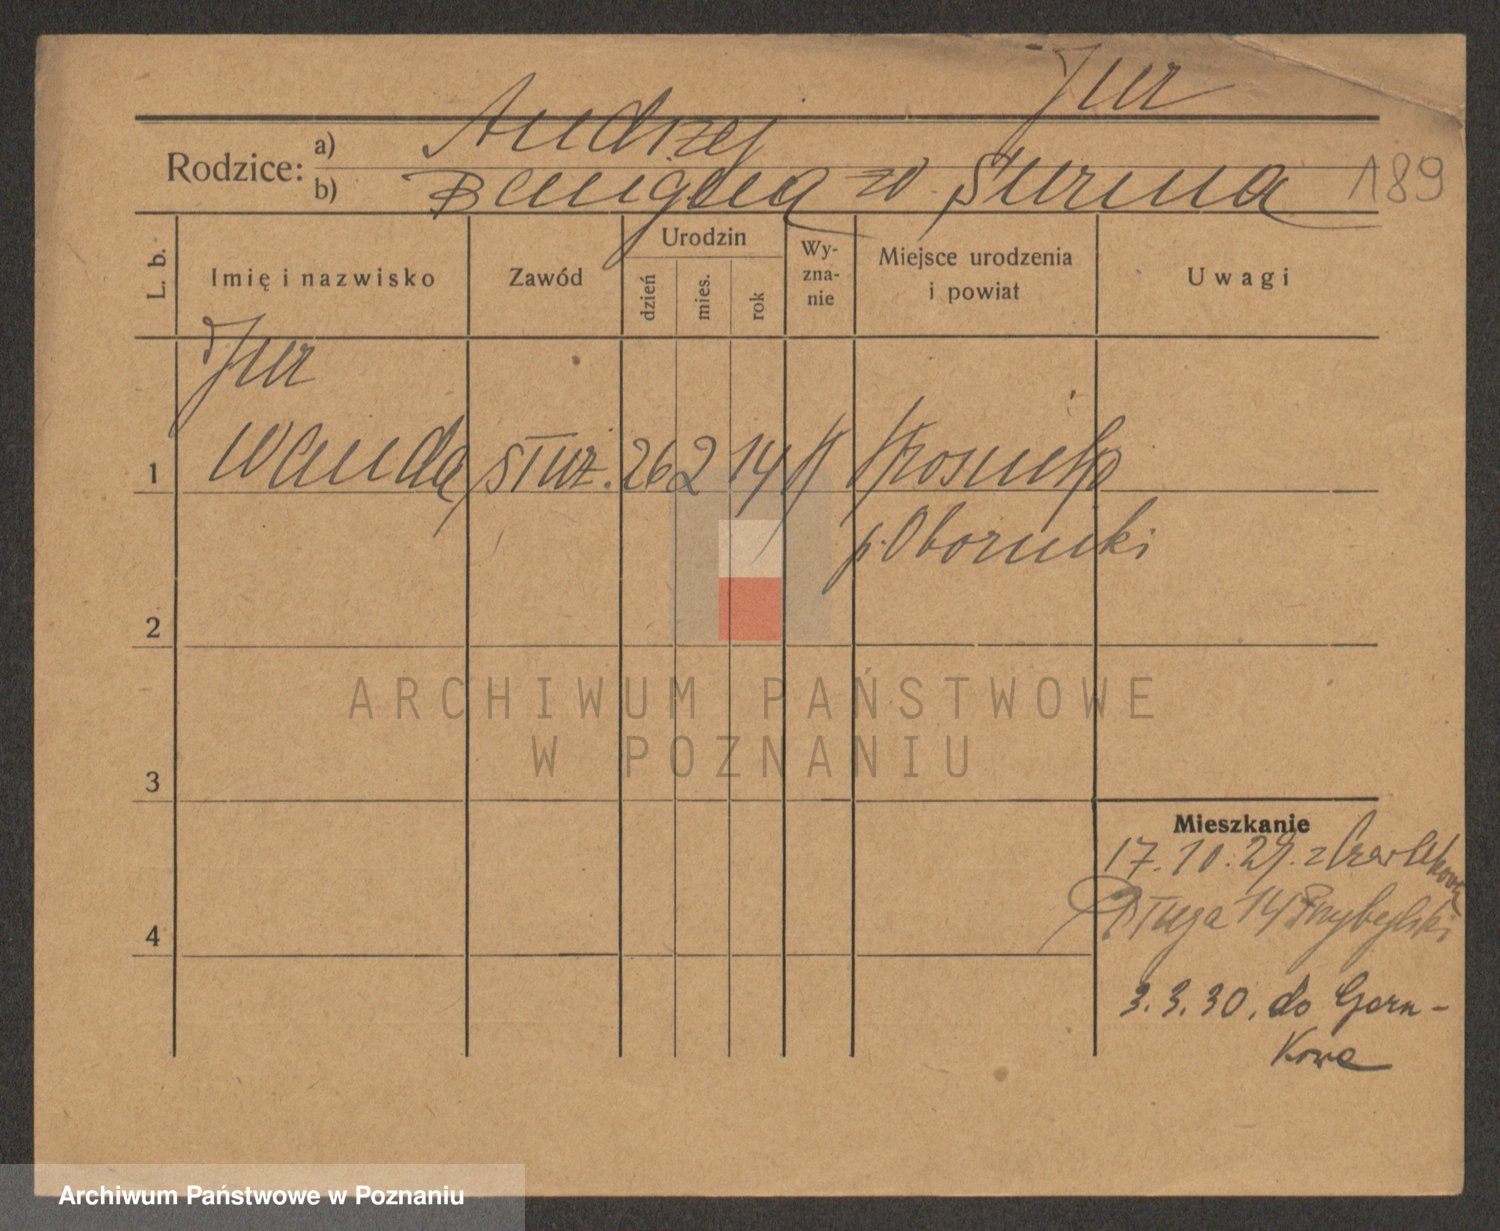 Jur
Rodzice: a) Andrzej
b) Benigna z d. Surma 189
L. b. Imię i nazwisko Zawód Urodzin dzień mies. rok Wy-zna-nie Miejsce urodzenia i powiat Uwagi
Jur
1 Wanda służ. 26 2 14
p. Oborniki
2
ARCHIWUM PAŃSTWOWE
W POZNANIU
3
Mieszkanie
17.10.29. z Czarnkowa
4 Długa 14 Przybylski
3.3.30. do Czarn-
kowa
Archiwum Państwowe w Poznaniu